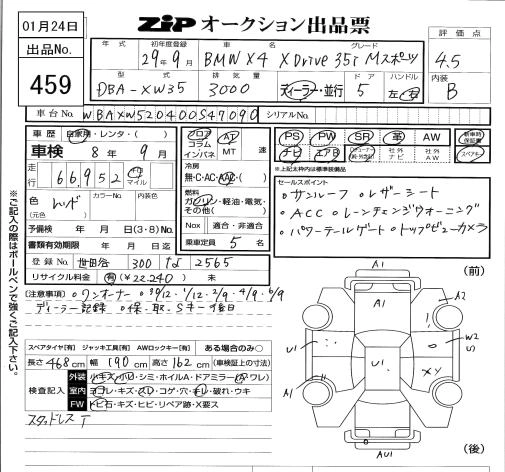 01月24日
出品No.
459
ZIP オークション出品票
評価点
4.5
内装
B
年式 初年度登録 車名 グレード
29年9月 BMW X4 XDrive 35i Mスポーツ
型式 排気量 ドア ハンドル
DBA-XW35 3000 ディーラー・並行 5 左・右
車台No. WBAXW520400S47090 シリアルNo.
車歴 自家用・レンタ・( )
車検 8年9月
走行 66,952 キロ マイル
色 レッド カラーNo. 内装色
(元色 )
予備検 年 月 日(3・8)No.
書類有効期限 年 月 日迄
登録No. 世田谷 300 な 2565
リサイクル料金 有(¥22,240) 未
フロア
コラム
インパネ
AT
MT 速
冷房
無・C・AC・AAC・( )
燃料
ガソリン・軽油・電気・
その他( )
Nox 適合・非適合
乗車定員 5 名
PS PW SR 革 AW 新車時保証書
ナビ エアB 社外ナビ 社外AW スペアキー
※上記太枠内は標準装備品
セールスポイント
・サンルーフ ・レザーシート
・ACC ・レーンチェンジウォーニング
・パワーテールゲート ・トップビューカメラ
[注意事項] ・ワンオーナー ・30/12・1/12・2/9・4/9・6/9
ディーラー記録 ・保・取・Sキー後日
スペアタイヤ[有] ジャッキ工具[有] AWロックキー[有] ある場合のみ○
長さ 468cm 幅 190cm 高さ 162cm (車検証上の寸法)
検査記入
外装 小キズ・小凹・シミ・ホイルA・ドアミラー(キズ・ワレ)
室内 ヨゴレ・キズ・スレ・コゲ・穴・キレ・破れ・ウキ
FW トビ石・キズ・ヒビ・リペア跡・X要ス
スタッドレスT
※ご記入の際はボールペンで強くご記入下さい。
(前)
A1
A1
A2
U1
U1
W2
S1
XY
A1
AU1
(後)